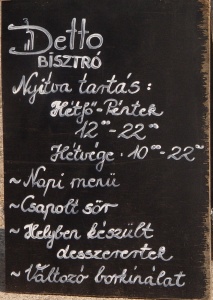 Detto
BISZTRÓ
Nyitva tartás:
Hétfő-Péntek
12⁰⁰-22⁰⁰
Hétvége · 10⁰⁰-22⁰⁰
~ Napi menü
~ Csapolt sör
~ Helyben készült
desszerertek
~ Változó borkínálat